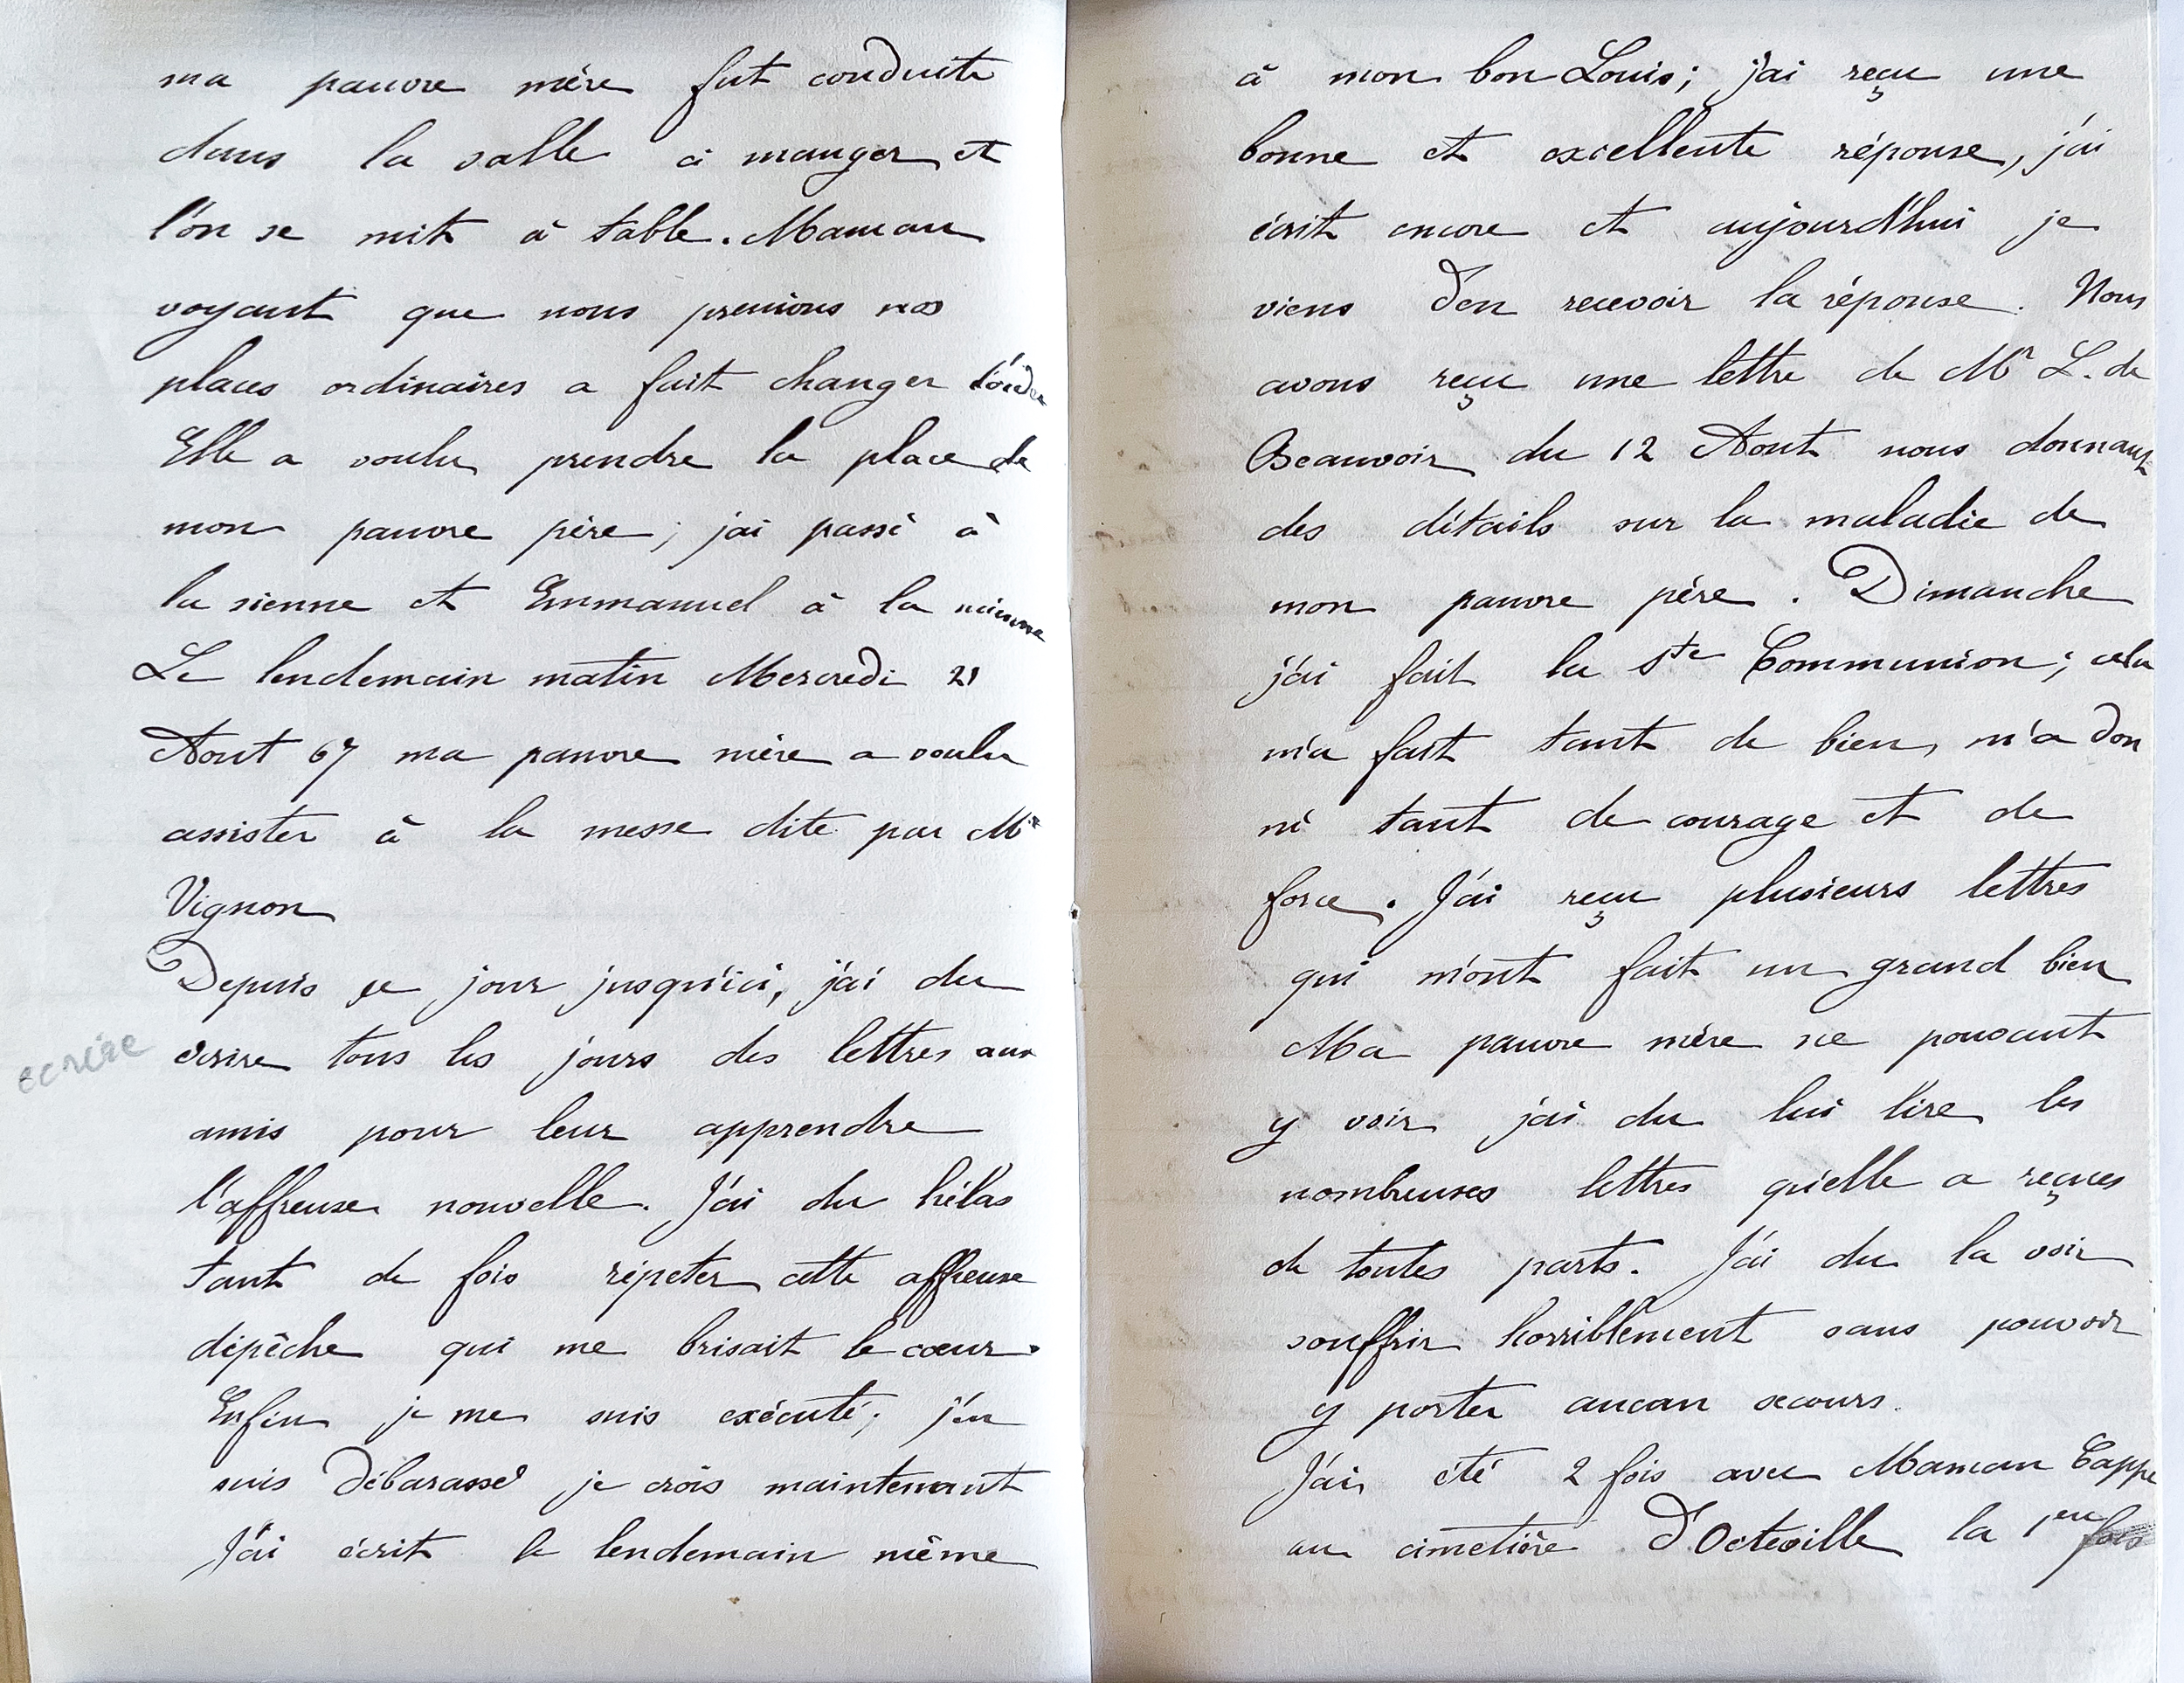 ma pauvre mère fut conduite
dans la salle à manger et
l'on se mit à table. Maman
voyant que nous prenions nos
places ordinaires a fait changer l'ordre
Elle a voulu prendre la place de
mon pauvre père ; j'ai passé à
la sienne et Emmanuel à la mienne
Le lendemain matin Mercredi 21
Aout 67 ma pauvre mère a voulu
assister à la messe dite par Mr
Vignon
Depuis ce jour jusqu'ici, j'ai du
ecrire
écrire tous les jours des lettres aux
amis pour leur apprendre
l'affreuse nouvelle. J'ai du hélas
tant de fois répeter cette affreuse
dépêche qui me brisait le cœur.
Enfin je me suis exécuté ; j'en
suis débarassé je crois maintenant
J'ai écrit le lendemain même
à mon bon Louis ; j'ai reçu une
bonne et excellente réponse, j'ai
écrit encore et aujourd'hui je
viens d'en recevoir la réponse. Nous
avons reçu une lettre de Mr L. de
Beauvoir du 12 Aout nous donnant
des détails sur la maladie de
mon pauvre père. Dimanche
j'ai fait la Ste Communion ; cela
m'a fait tant de bien, m'a don
né tant de courage et de
force. J'ai reçu plusieurs lettres
qui m'ont fait un grand bien
Ma pauvre mère ne pouvant
y voir j'ai du lui lire les
nombreuses lettres qu'elle a reçues
de toutes parts. J'ai du la voir
souffrir horriblement sans pouvoir
y porter aucun secours.
J'ai été 2 fois avec Maman Cappe
au cimetière d'Octeville la 1ere fois